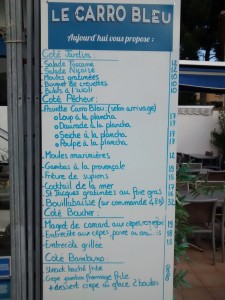 LE CARRO BLEU
Aujourd'hui vous propose :
Coté Jardin:
Salade Toscane
Salade Niçoise
Moules gratinées
Bouquet de crevettes
Bulots à l'aïoli
Coté Pêcheur:
Assiette Carro Bleu (selon arrivage)
Loup à la plancha 17
Daurade à la plancha 17
Seiche à la plancha
Poulpe à la plancha
Moules marinières
Gambas à la provençale
Friture de supions
Cocktail de la mer
St Jacques gratinées au foie gras
Bouillabaisse (sur commande 48h)
Coté Boucher:
Magret de canard aux cèpes
Entrecôte aux cèpes
Entrecôte grillée
Coté Bambino:
Steack haché frite
Crêpe jambon fromage frite
+ dessert crêpe ou glace 2 boules